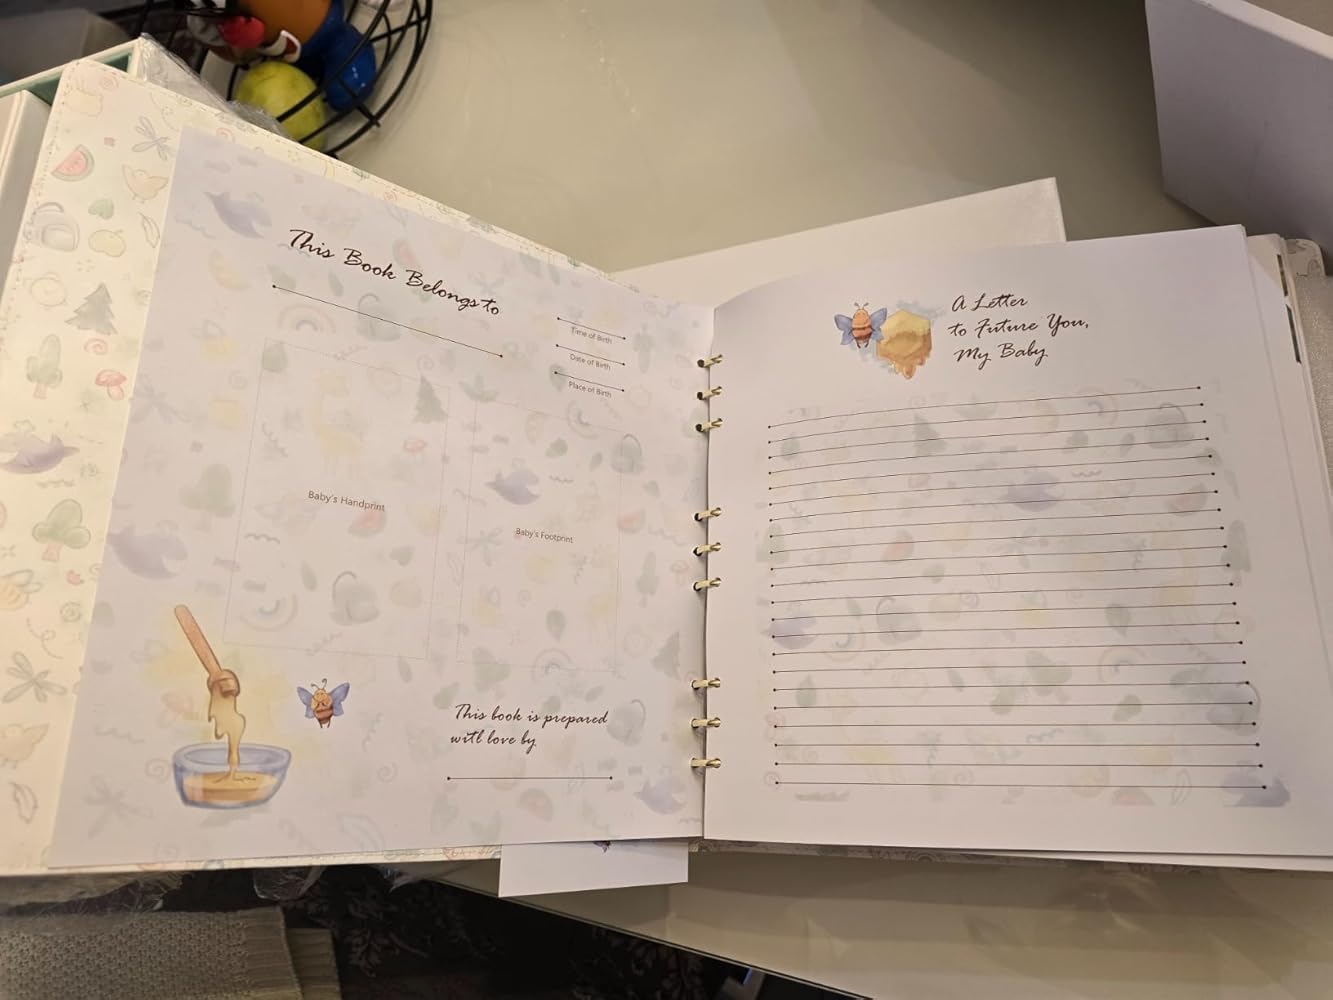 This Book Belongs to
Time of Birth
Date of Birth
Place of Birth
Baby's Handprint
Baby's Footprint
This book is prepared
with love by
A Letter
to Future You,
My Baby